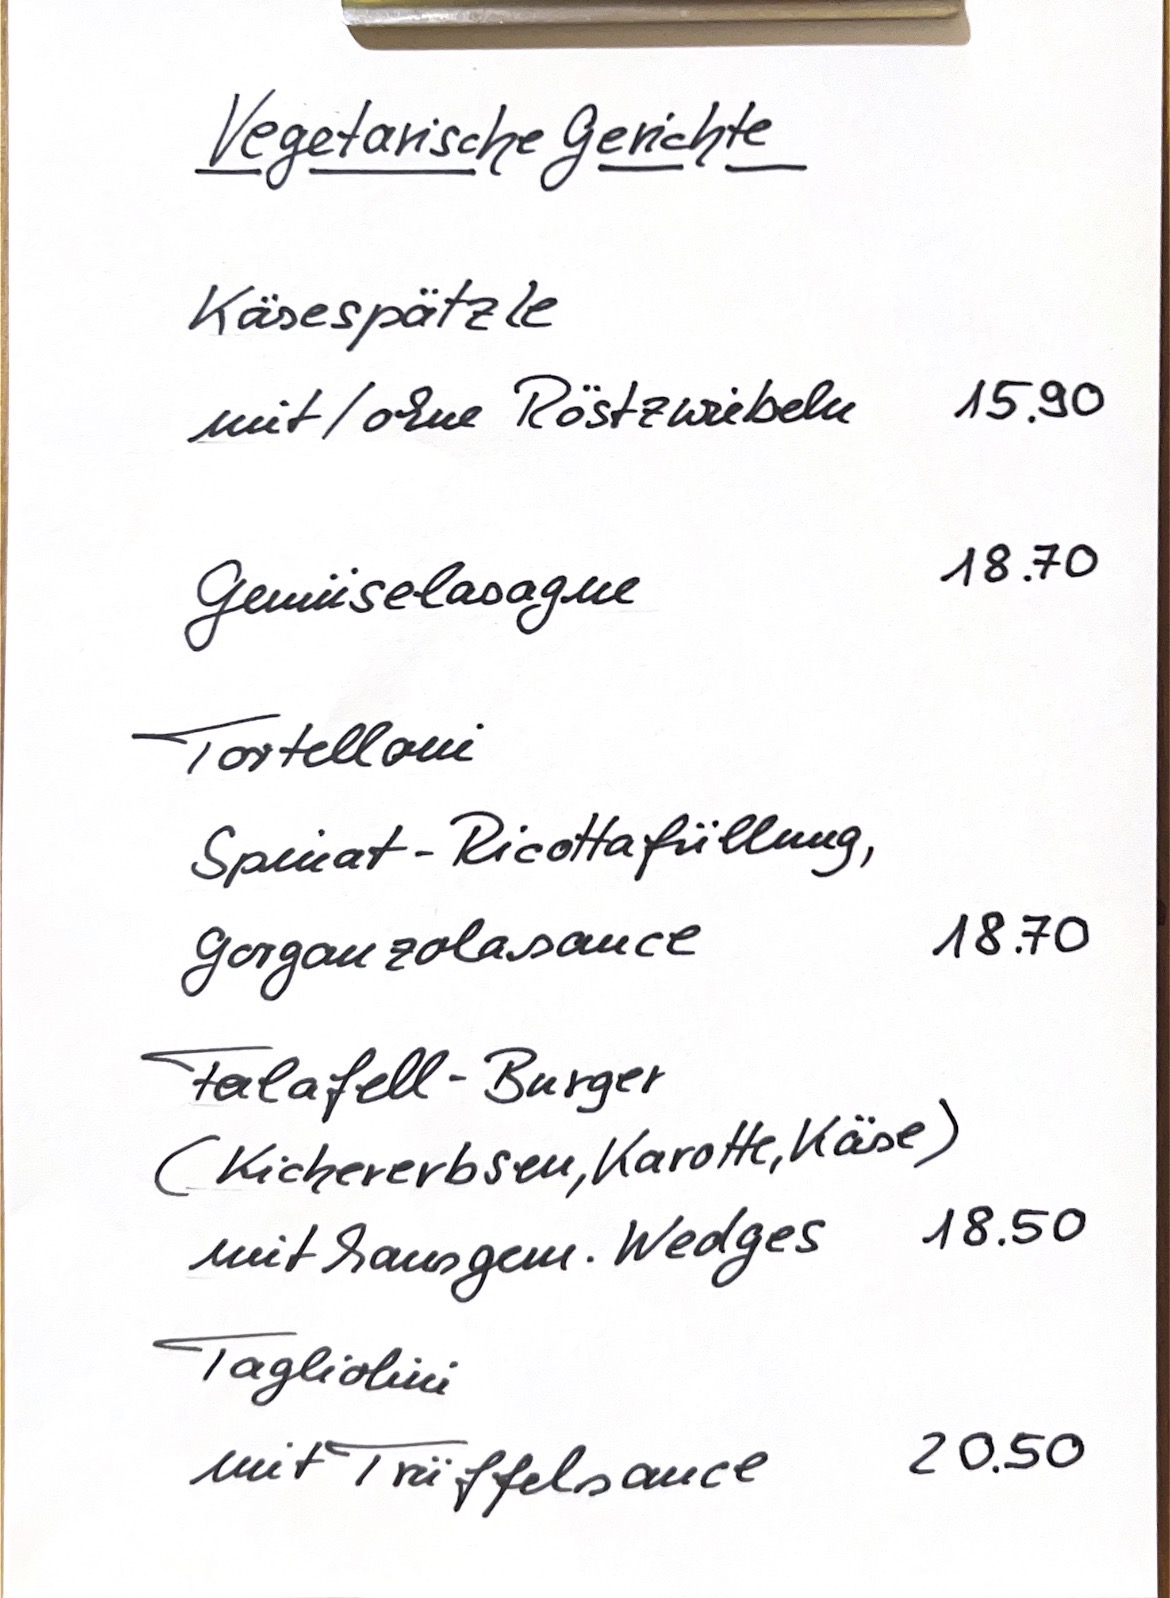 Vegetarische Gerichte
Käsespätzle
mit/ohne Röstzwiebeln 15.90
Gemüselasagne 18.70
Tortelloni
Spinat-Ricottafüllung,
Gorganzolasauce 18.70
Falafell-Burger
(Kichererbsen, Karotte, Käse)
mit hausgem. Wedges 18.50
Tagliolini
mit Trüffelsauce 20.50